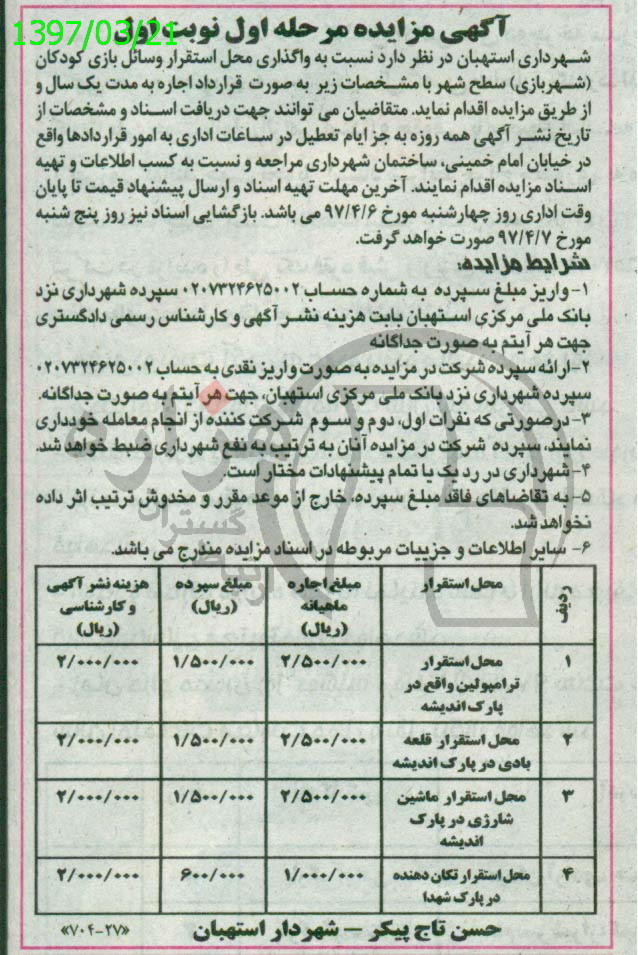 1397/03/21
آگهی مزایده مرحله اول نوبت اول
شهرداری استهبان در نظر دارد نسبت به واگذاری محل استقرار وسائل بازی کودکان
(شهربازی) سطح شهر با مشخصات زیر به صورت قرارداد اجاره به مدت یک سال و
از طریق مزایده اقدام نماید. متقاضیان می توانند جهت دریافت اسناد و مشخصات از
تاریخ نشر آگهی همه روزه به جز ایام تعطیل در ساعات اداری به امور قراردادها واقع
در خیابان امام خمینی، ساختمان شهرداری مراجعه و نسبت به کسب اطلاعات و تهیه
اسناد مزایده اقدام نمایند. آخرین مهلت تهیه اسناد و ارسال پیشنهاد قیمت تا پایان
وقت اداری روز چهارشنبه مورخ ۹۷/۴/۶ می باشد. بازگشایی اسناد نیز روز پنج شنبه
مورخ ۹۷/۴/۷ صورت خواهد گرفت.
شرایط مزایده:
۱- واریز مبلغ سپرده به شماره حساب ۰۲۰۷۳۲۴۶۲۵۰۰۲ سپرده شهرداری نزد
بانک ملی مرکزی استهبان بابت هزینه نشر آگهی و کارشناس رسمی دادگستری
جهت هر آیتم به صورت جداگانه
۲- ارائه سپرده شرکت در مزایده به صورت واریز نقدی به حساب ۰۲۰۷۳۲۴۶۲۵۰۰۲
سپرده شهرداری نزد بانک ملی مرکزی استهبان، جهت هر آیتم به صورت جداگانه.
۳- درصورتی که نفرات اول، دوم و سوم شرکت کننده از انجام معامله خودداری
نمایند، سپرده شرکت در مزایده آنان به ترتیب به نفع شهرداری ضبط خواهد شد.
۴- شهرداری در رد یک یا تمام پیشنهادات مختار است.
۵- به تقاضاهای فاقد مبلغ سپرده، خارج از موعد مقرر و مخدوش ترتیب اثر داده
نخواهد شد.
۶- سایر اطلاعات و جزییات مربوطه در اسناد مزایده مندرج می باشد.
ردیف محل استقرار مبلغ اجاره ماهیانه (ریال) مبلغ سپرده (ریال) هزینه نشر آگهی و کارشناسی (ریال)
۱ محل استقرار ترامپولین واقع در پارک اندیشه ۲/۵۰۰/۰۰۰ ۱/۵۰۰/۰۰۰ ۲/۰۰۰/۰۰۰
۲ محل استقرار قلعه بادی در پارک اندیشه ۲/۵۰۰/۰۰۰ ۱/۵۰۰/۰۰۰ ۲/۰۰۰/۰۰۰
۳ محل استقرار ماشین شارژی در پارک اندیشه ۲/۵۰۰/۰۰۰ ۱/۵۰۰/۰۰۰ ۲/۰۰۰/۰۰۰
۴ محل استقرار تکان دهنده در پارک شهدا ۱/۰۰۰/۰۰۰ ۶۰۰/۰۰۰ ۲/۰۰۰/۰۰۰
حسن تاج پیکر – شهردار استهبان
«۷۰۴-۲۷»